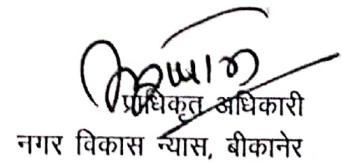 प्राधिकृत अधिकारी
नगर विकास न्यास, बीकानेर